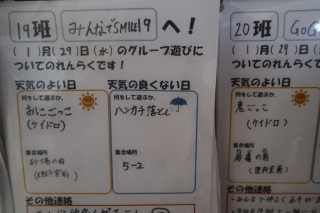 19班 みんなでSMILE19 へ!
(1)月(29)日(水)のグループ遊びに
ついてのれんらくです!
天気のよい日
何をして遊ぶか。
おにごっこ
(ケイドロ)
集合場所
砂場の前
天気の良くない日
何をして遊ぶか。
ハンカチ落とし
集合場所
5-2
その他連絡
20班
(1)月(29)日
についてのれんらく
天気のよい日
何をして遊ぶか。
鬼ごっこ
(ケイドロ)
集合場所
砂場の前
(理科室裏)
その他連絡